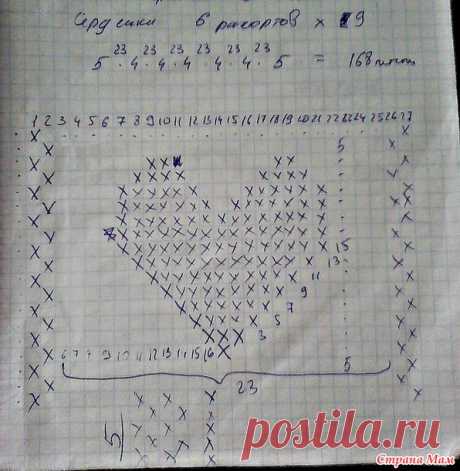 Сердечки 6 рапортов x 19
23 23 23 23 23 23
5 · 4 · 4 · 4 · 4 · 4 · 5 = 168 петель
1 2 3 4 5 6 7 8 9 10 11 12 13 14 15 16 17 18 19 20 21 22 23 24 25 26 27
5
15
13
11
9
7
5
3
6 7 8 9 10 11 12 13 14 15 16
5
23
5
postila.ru
Страна Мам